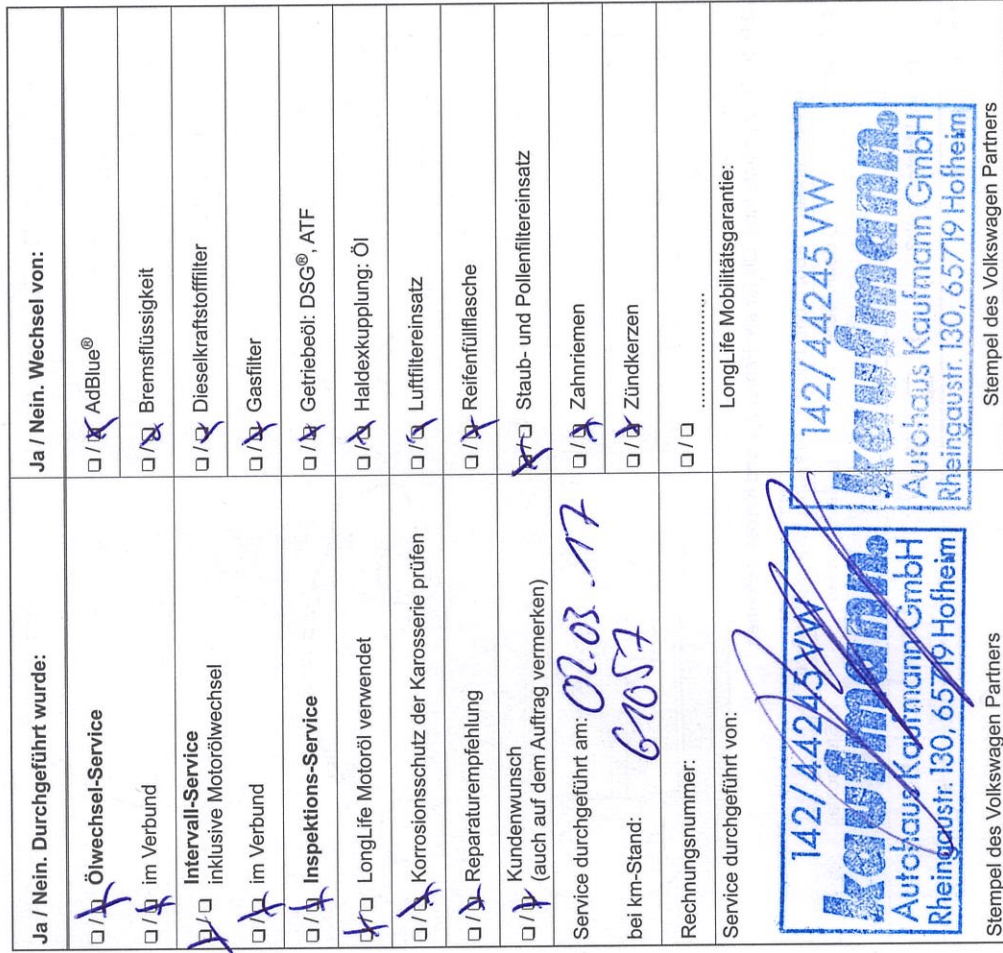 Ja / Nein. Durchgeführt wurde:
☐ / ☒ Ölwechsel-Service
☐ / ☒ im Verbund
☒ / ☐ Intervall-Service
inklusive Motorölwechsel
☐ / ☒ im Verbund
☐ / ☒ Inspektions-Service
☒ / ☐ LongLife Motoröl verwendet
☐ / ☒ Korrosionsschutz der Karosserie prüfen
☐ / ☒ Reparaturempfehlung
☐ / ☒ Kundenwunsch
(auch auf dem Auftrag vermerken)
Service durchgeführt am: 02.03.17
bei km-Stand: 61057
Rechnungsnummer:
Service durchgeführt von:
142/44245 VW
kaufmann.
Autohaus Kaufmann GmbH
Rheingaustr. 130, 65719 Hofheim
Stempel des Volkswagen Partners
Ja / Nein. Wechsel von:
☐ / ☒ AdBlue®
☐ / ☒ Bremsflüssigkeit
☐ / ☒ Dieselkraftstofffilter
☐ / ☒ Gasfilter
☐ / ☒ Getriebeöl: DSG®, ATF
☐ / ☒ Haldexkupplung: Öl
☐ / ☒ Luftfiltereinsatz
☐ / ☒ Reifenfüllflasche
☒ / ☐ Staub- und Pollenfiltereinsatz
☐ / ☒ Zahnriemen
☐ / ☒ Zündkerzen
☐ / ☐ ....................
LongLife Mobilitätsgarantie:
142/44245 VW
kaufmann.
Autohaus Kaufmann GmbH
Rheingaustr. 130, 65719 Hofheim
Stempel des Volkswagen Partners